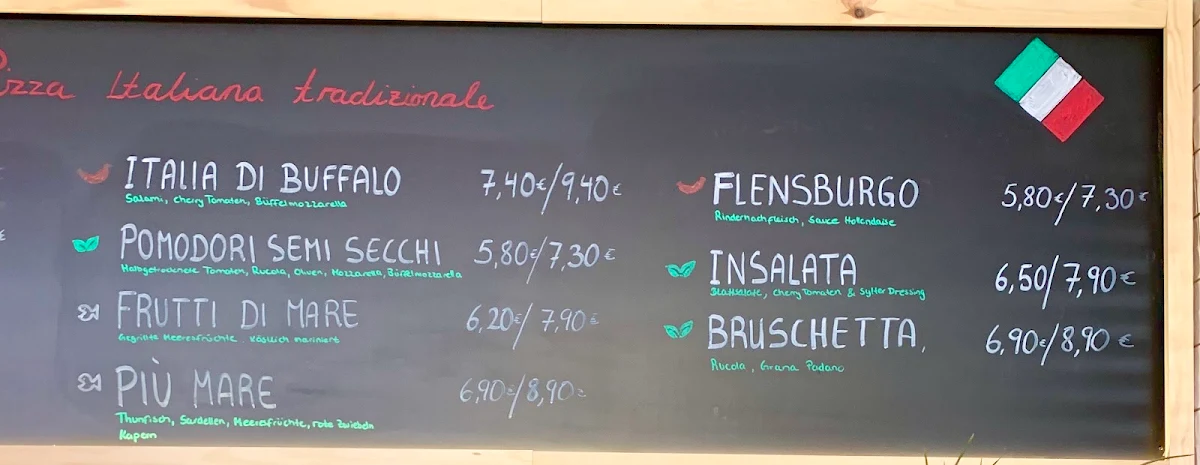 Pizza Italiana tradizionale
ITALIA DI BUFFALO 7,40€/9,40€
Salami, Cherry Tomaten, Büffelmozzarella
POMODORI SEMI SECCHI 5,80€/7,30€
Halbgetrocknete Tomaten, Rucola, Oliven, Mozzarella, Büffelmozzarella
FRUTTI DI MARE 6,20€/7,90€
Meeresfrüchte köstlich mariniert
PIÙ MARE 6,90€/8,90€
Thunfisch, Sardellen, Meeresfrüchte, rote Zwiebeln
Kapern
FLENSBURGO 5,80€/7,30€
Sauce Hollendaise
INSALATA 6,50/7,90€
Blattsalate, Cherry Tomaten & Sylter Dressing
BRUSCHETTA, 6,90€/8,90€
Rucola, Grana Padano